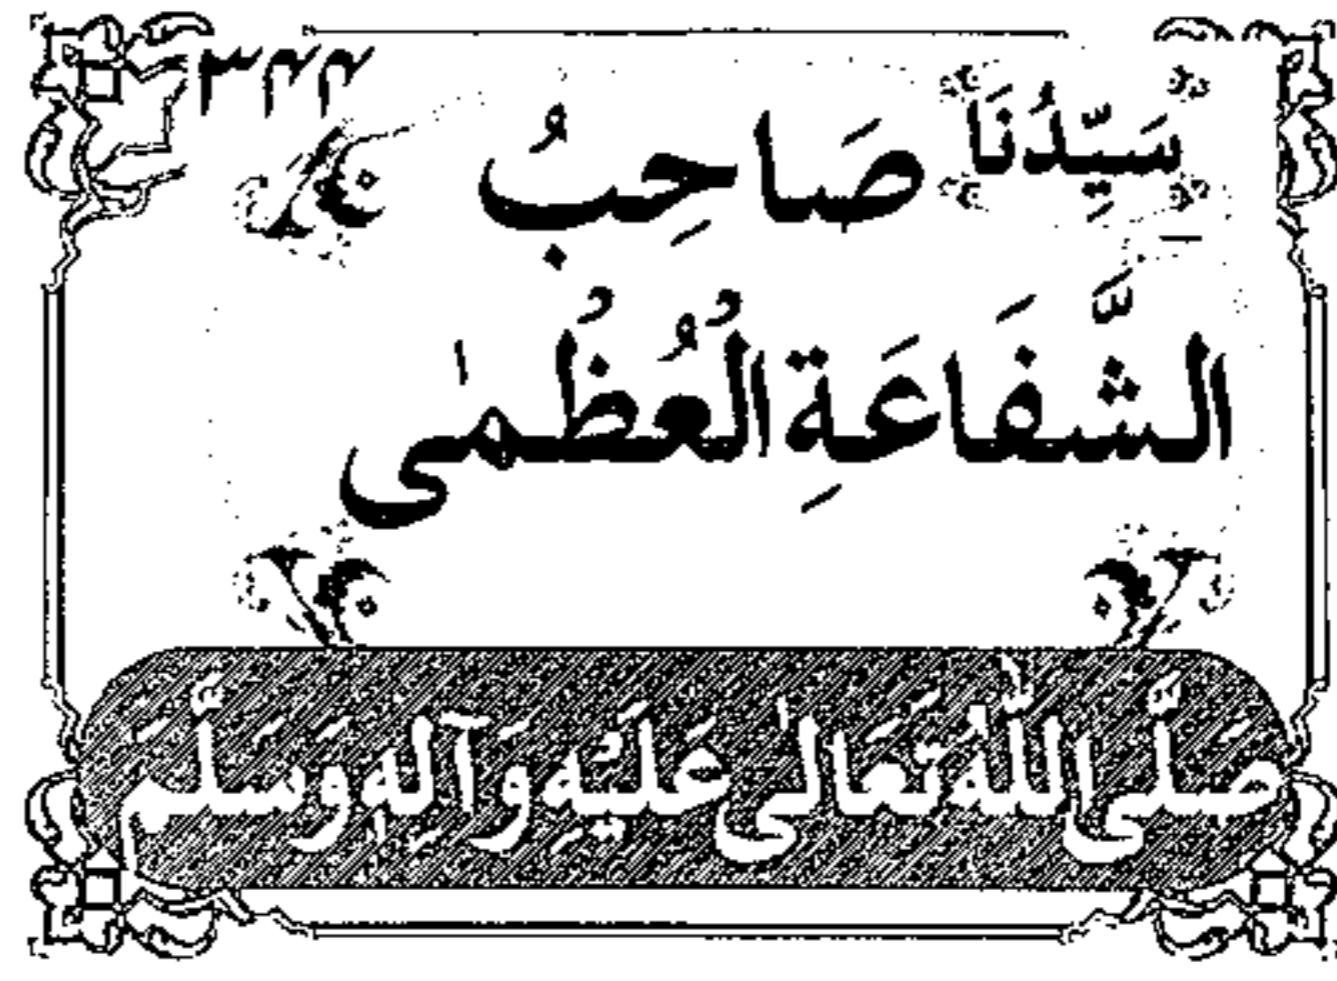 ٣٢٢
سَيِّدُنَا صَاحِبُ
الشَّفَاعَةِ الْعُظُمٰى
صَلَّى اللّٰهُ تَعَالٰى عَلَيْهِ وَآلِهٖ وَسَلَّمَ